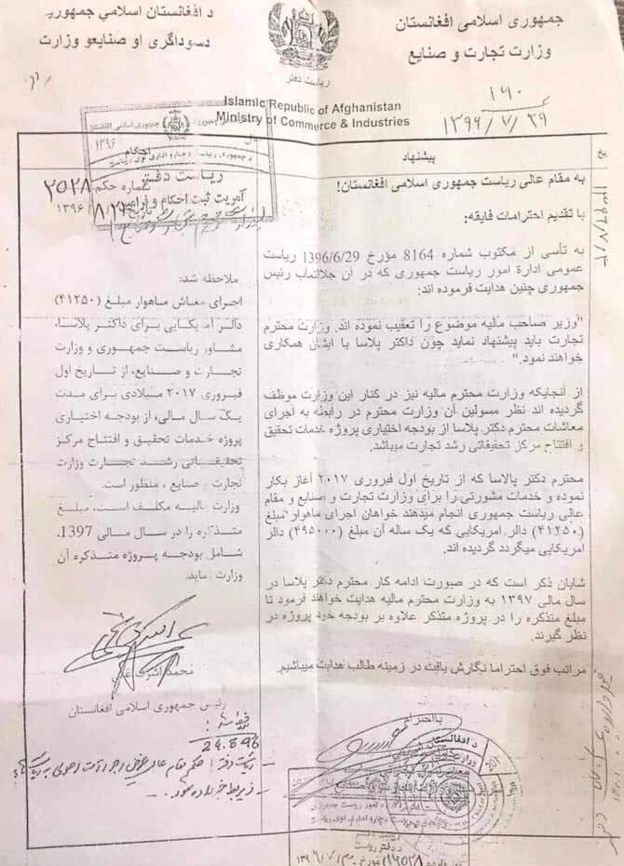 د افغانستان اسلامي جمهوریت
دسوداګری او صنایعو وزارت
جمهوری اسلامی افغانستان
وزارت تجارت و صنایع
ریاست دفتر
۱۶۰
۱۳۹۶/۷/۲۹
Islamic Republic of Afghanistan
Ministry of Commerce & Industries
جمهوری اسلامی افغانستان
۱۳۹۶
احکام
ریاست دفتر
آمریت ثبت احکام و فرامین
شماره حکم ۲۵۲۸
پیشنهاد
به مقام عالی ریاست جمهوری اسلامی افغانستان!
با تقدیم احترامات فایقه:
به تأسی از مکتوب شماره 8164 مؤرخ 1396/6/29 ریاست
عمومی ادارۀ امور ریاست جمهوری که در آن جلالتماب رئیس
جمهوری چنین هدایت فرموده اند:
"وزیر صاحب مالیه موضوع را تعقیب نموده اند. وزارت محترم
تجارت باید پیشنهاد نماید چون داکتر پلاسا با ایشان همکاری
خواهند نمود."
از آنجایکه وزارت محترم مالیه نیز در کنار این وزارت موظف
گردیده اند نظر مسولین آن وزارت محترم در رابطه به اجرای
معاشات محترم دکتر پلاسا از بودجه اختیاری پروژه خدمات تحقیق
و افتتاح مرکز تحقیقاتی رشد تجارت میباشد.
محترم دکتر پالاسا که از تاریخ اول فبروری ۲۰۱۷ آغاز بکار
نموده و خدمات مشورتی را برای وزارت تجارت و صنایع و مقام
عالی ریاست جمهوری انجام میدهند خواهان اجرای ماهوار مبلغ
(۴۱۲۵۰) دالر امریکایی که یک ساله آن مبلغ (۴۹۵۰۰۰) دالر
امریکایی میگردد گردیده اند.
شایان ذکر است که در صورت ادامه کار محترم دکتر پلاسا در
سال مالی ۱۳۹۷ به وزارت محترم مالیه هدایت خواهند فرمود تا
مبلغ متذکره را در پروژه متذکر علاوه بر بودجه خود پروژه در
نظر گیرند.
مراتب فوق احتراما نگارش یافت در زمینه طالب هدایت میباشیم.
بااحترام
ملاحظه شد:
اجرای معاش ماهوار مبلغ (۴۱۲۵۰)
دالر امریکایی برای داکتر پلاسا،
مشاور ریاست جمهوری و وزارت
تجارت و صنایع، از تاریخ اول
فبروری ۲۰۱۷ میلادی برای مدت
یک سال مالی، از بودجه اختیاری
پروژه خدمات تحقیق و افتتاح مرکز
تحقیقاتی رشد تجارت وزارت
تجارت و صنایع، منظور است.
وزارت مالیه مکلف است، مبلغ
متذکره را در سال مالی 1397،
شامل بودجه پروژه متذکره آن
وزارت نماید.
محمد اشرف غنی
رئیس جمهوری اسلامی افغانستان
24.8.96